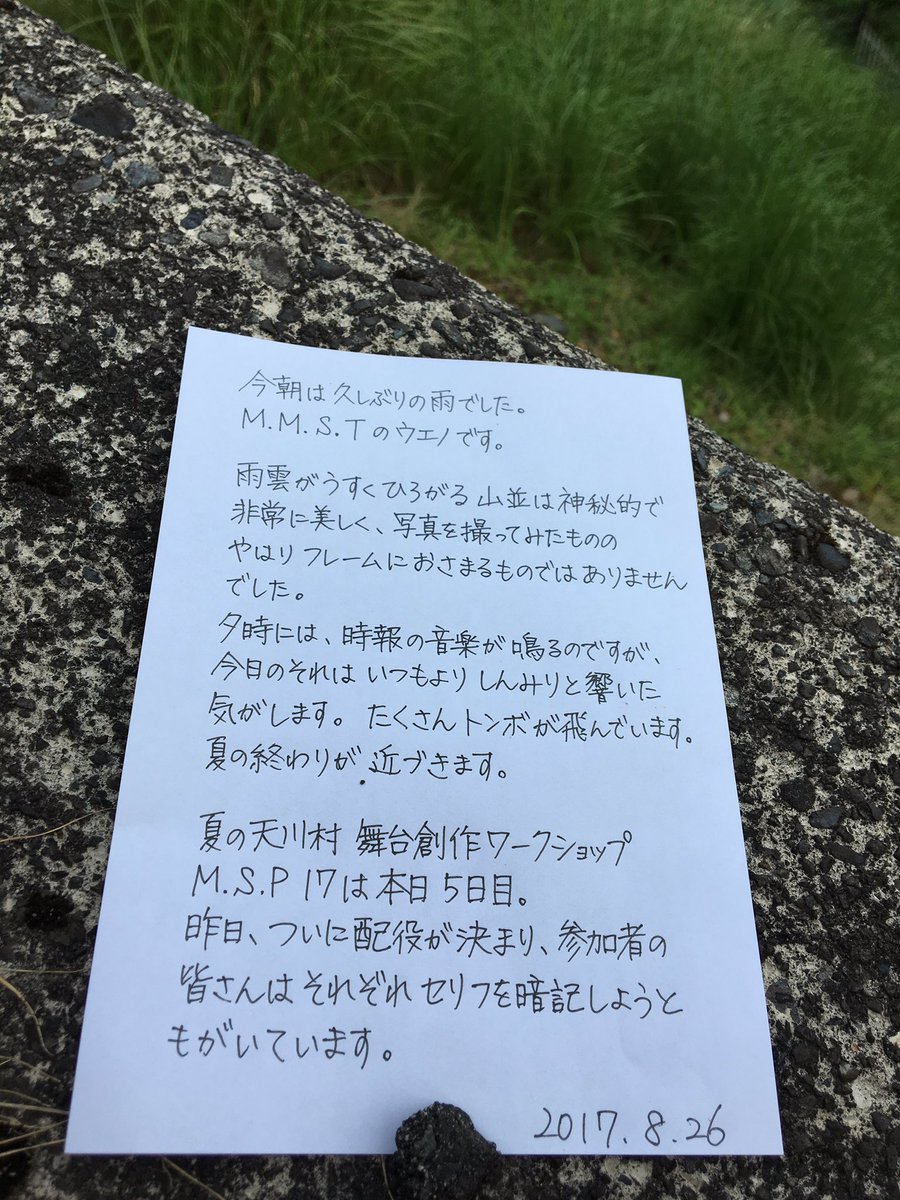 今朝は久しぶりの雨でした。
M.M.S.Tのウエノです。
雨雲がうすくひろがる山並は神秘的で
非常に美しく、写真を撮ってみたものの
やはりフレームにおさまるものではありません
でした。
夕時には、時報の音楽が鳴るのですが、
今日のそれはいつもよりしんみりと響いた
気がします。たくさんトンボが飛んでいます。
夏の終わりが近づきます。
夏の天川村 舞台創作ワークショップ
M.S.P 17は本日5日目。
昨日、ついに配役が決まり、参加者の
皆さんはそれぞれセリフを暗記しようと
もがいています。
2017.8.26